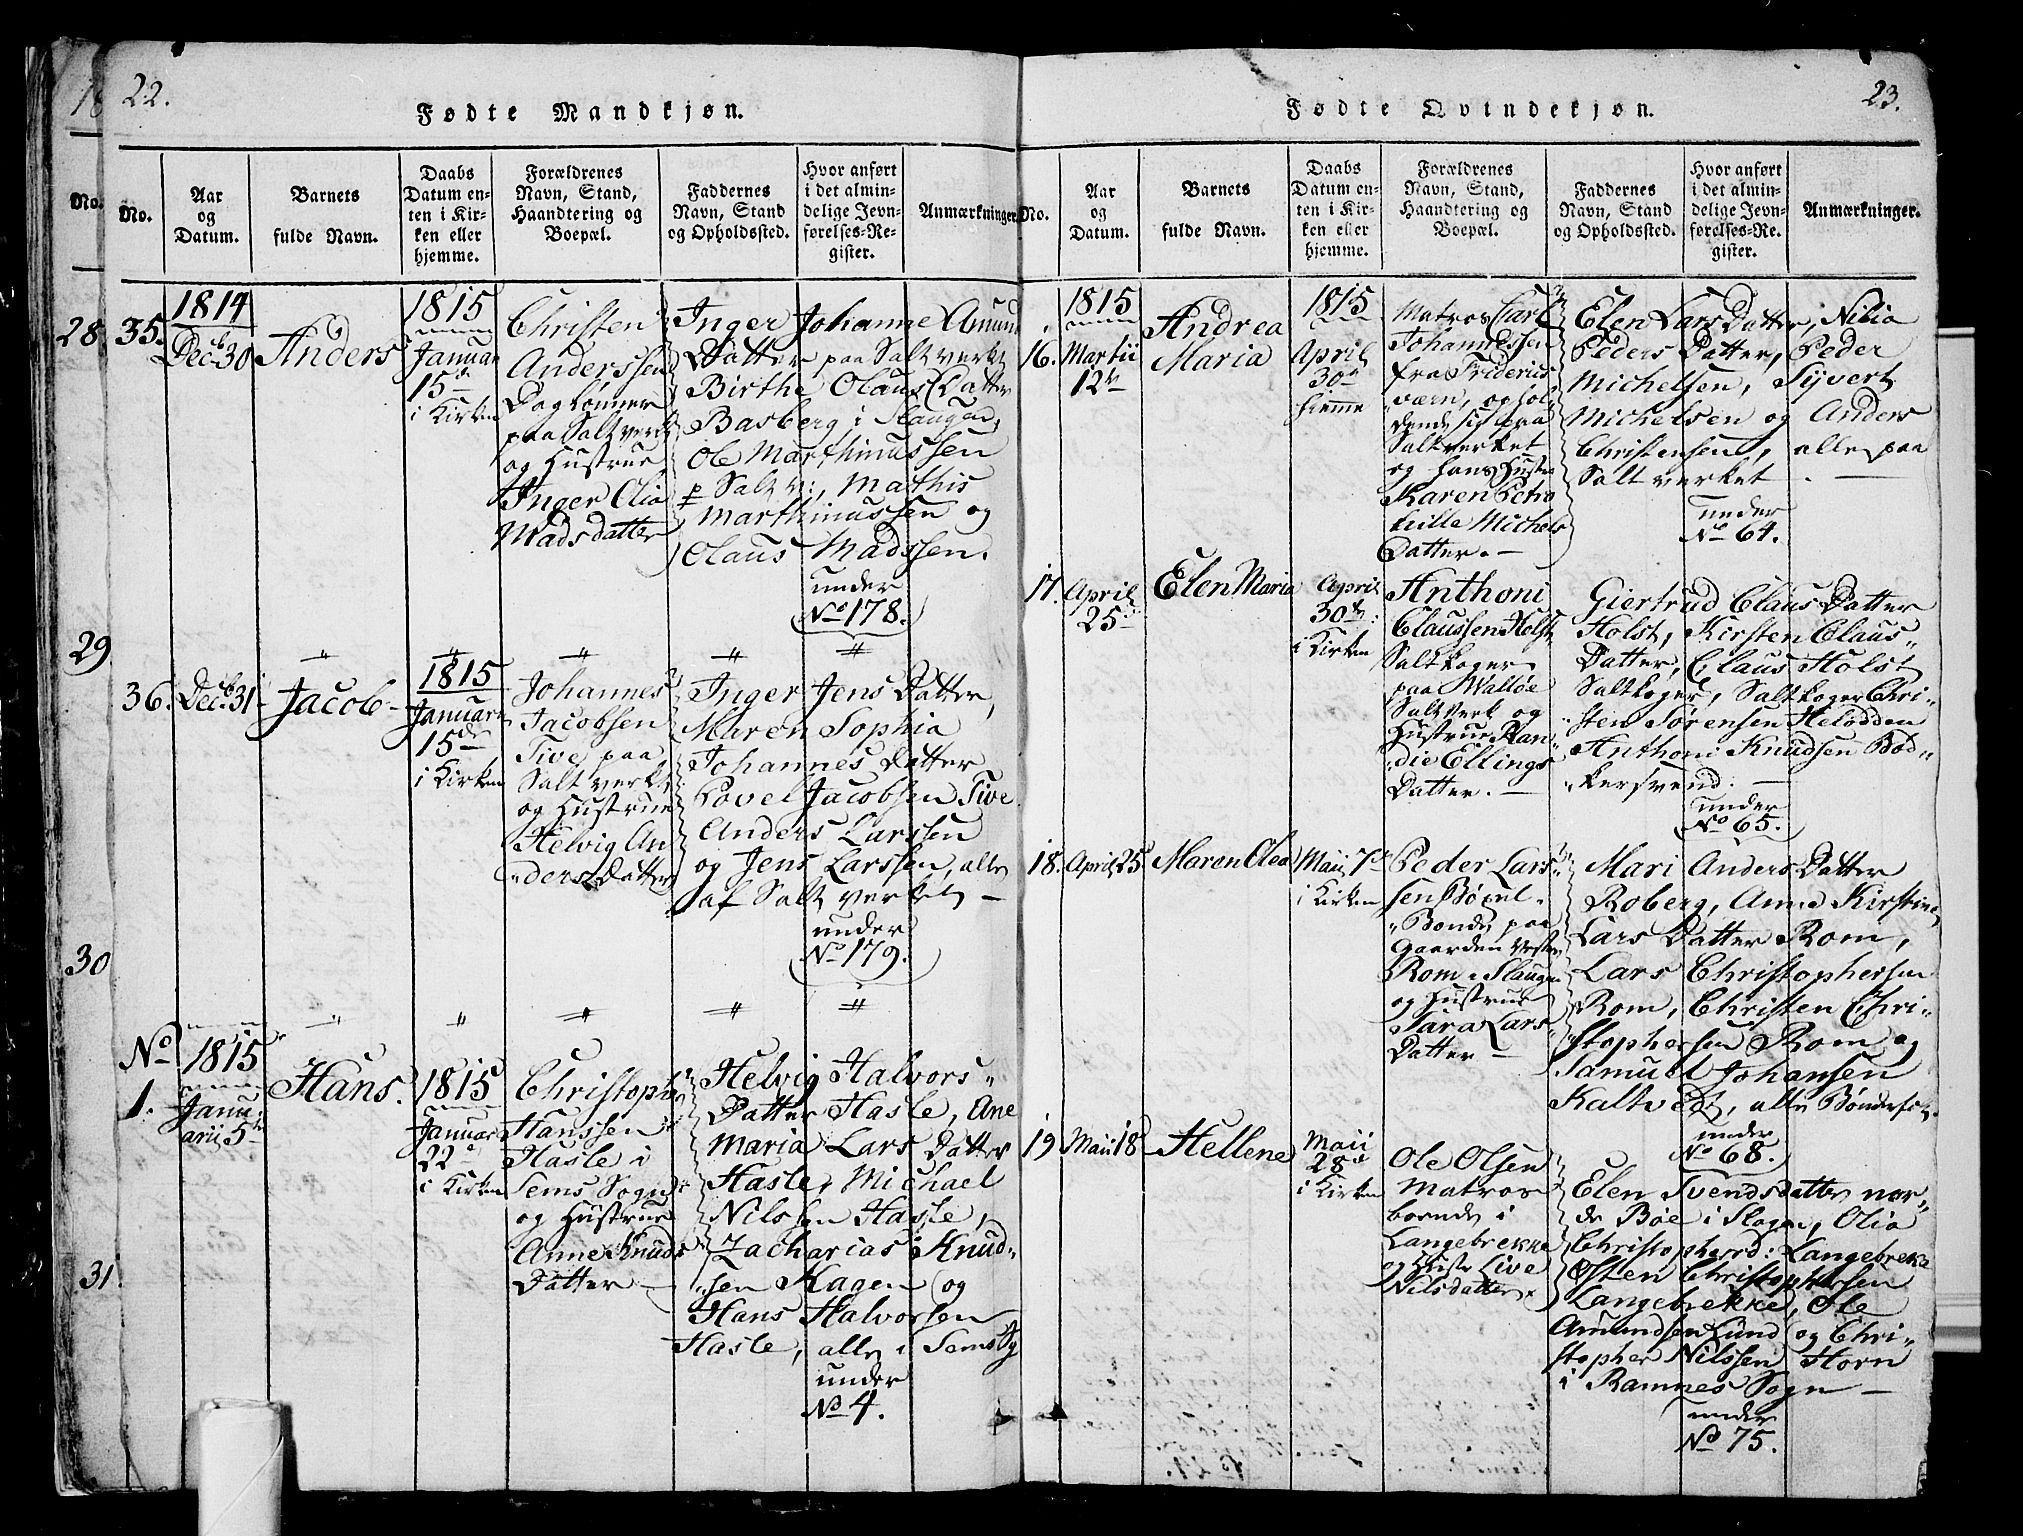 22.
Fødte Mandkjøn.
No.
Aar
og
Datum.
Barnets
fulde Navn.
Daabs
Datum en-
ten i Kir-
ken eller
hjemme.
Forældrenes
Navn, Stand,
Haandtering og
Boepæl.
Faddernes
Navn, Stand
og Opholdssted.
Hvor anført
i det almin-
delige Jevn-
førelses-Re-
gister.
Anmærkninger.
35.
1814
Decb 30
Anders
1815
Januar
15de
i Kirken
Christen
Anderssen
Daglønner
paa Saltverk
og Hustrue
Inger Olia
Madsdatter
Inger Johanne Amund
Datter paa Saltverket
Birthe Olaus Datter
Basberg i Slaugen,
Ole Marthinussen
p Saltv:, Mathis
Marthinussen og
Olaus Madssen.
under
No 178.
36.
Decb 31
Jacob
1815
Januar
15de
i Kirken
Johannes
Jacobsen
Tive paa
Saltverk
og Hustrue
Helvig An
ders Datter
Inger Jens Datter,
Maren Sophia
Johannes Datter
Povel Jacobsen Tive
Anders Larssen
og Jens Larssen, alle
af Saltverket
under
No 179.
No
1.
1815
Janu-
arii 5te
Hans.
1815
Januar
22de
i Kirken
Christoph
Hanssen
Hasle i
Sems Sogn
og Hustrue
Anne Knuds
Datter
Helvig Halvors
Datter Hasle, Ane
Maria Lars Datter
Hasle, Michael
Nilssen Hasle,
Zacharias Knud-
sen Kagen og
Hans Halvorsen
Hasle, alle i Sems Sg
under
No 4.
28
29
30
31.
No.
23.
Fødte Qvindekjøn.
No.
Aar
og
Datum.
Barnets
fulde Navn.
Daabs
Datum en-
ten i Kir-
ken eller
hjemme.
Forældrenes
Navn, Stand,
Haandtering og
Boepæl.
Faddernes
Navn, Stand
og Opholdssted.
Hvor anført
i det almin-
delige Jevn-
førelses-Re-
gister.
Anmærkninger.
16.
1815
Martii
12te
Andrea
Maria
1815
April
30te
hiemme
Matros Carl
Johannessen
fra Friderics
værn, ophol
dende sig paa
Saltverket
og hans Hustr
Karen Petro
nille Michels
Datter.
Elen Lars Datter, Nilia
Peders Datter, Peder
Michelsen, Syvert
Michelsen og Anders
Christensen, alle paa
Saltverket.
under
No 64.
17.
April
25de
Elen Maria
April
30te
i Kirken
Anthoni
Claussen Holst
Saltkoger
paa Walløe
Saltverk og
Hustrue Ran
die Ellings
Datter.
Giertrud Claus Datter
Holst, Kirsten Claus
Datter, Claus Holst
Saltkoger, Saltkoger Chri-
sten Sørensen Helødden
Anthoni Knudsen Bød-
kersvend.
under
No 65.
18.
April 25
Maren Olea
Maii 7de
i Kirken
Peder Lars
sen Bøxel
Bonde paa
Gaarden Vestre
Rom i Slaugen
og Hustrue
Sara Lars
Datter
Mari Anders Datter
Roberg, Anne Kirstine
Lars Datter Rom,
Lars Christophersen
Rom, Christen Chri-
stophersen Rom og
Samuel Johansen
Kaltvedt, alle Bønderfolk.
under
No 68.
19
Maii 18
Hellene
Maii
28de
i Kirken
Ole Olsen
Matros
boende i
Langebrekke
og Hustr Live
Nilsdatter.
Elen Svendsdatter nor-
dr Bøe i Slagen, Olia
Christophersd: Langebrekke
Osten Christophersen
Langebrekke, Ole
Amundsen Lund og Chri-
stopher Nilssen Horn
i Ramnes Sogn
under
No 75.